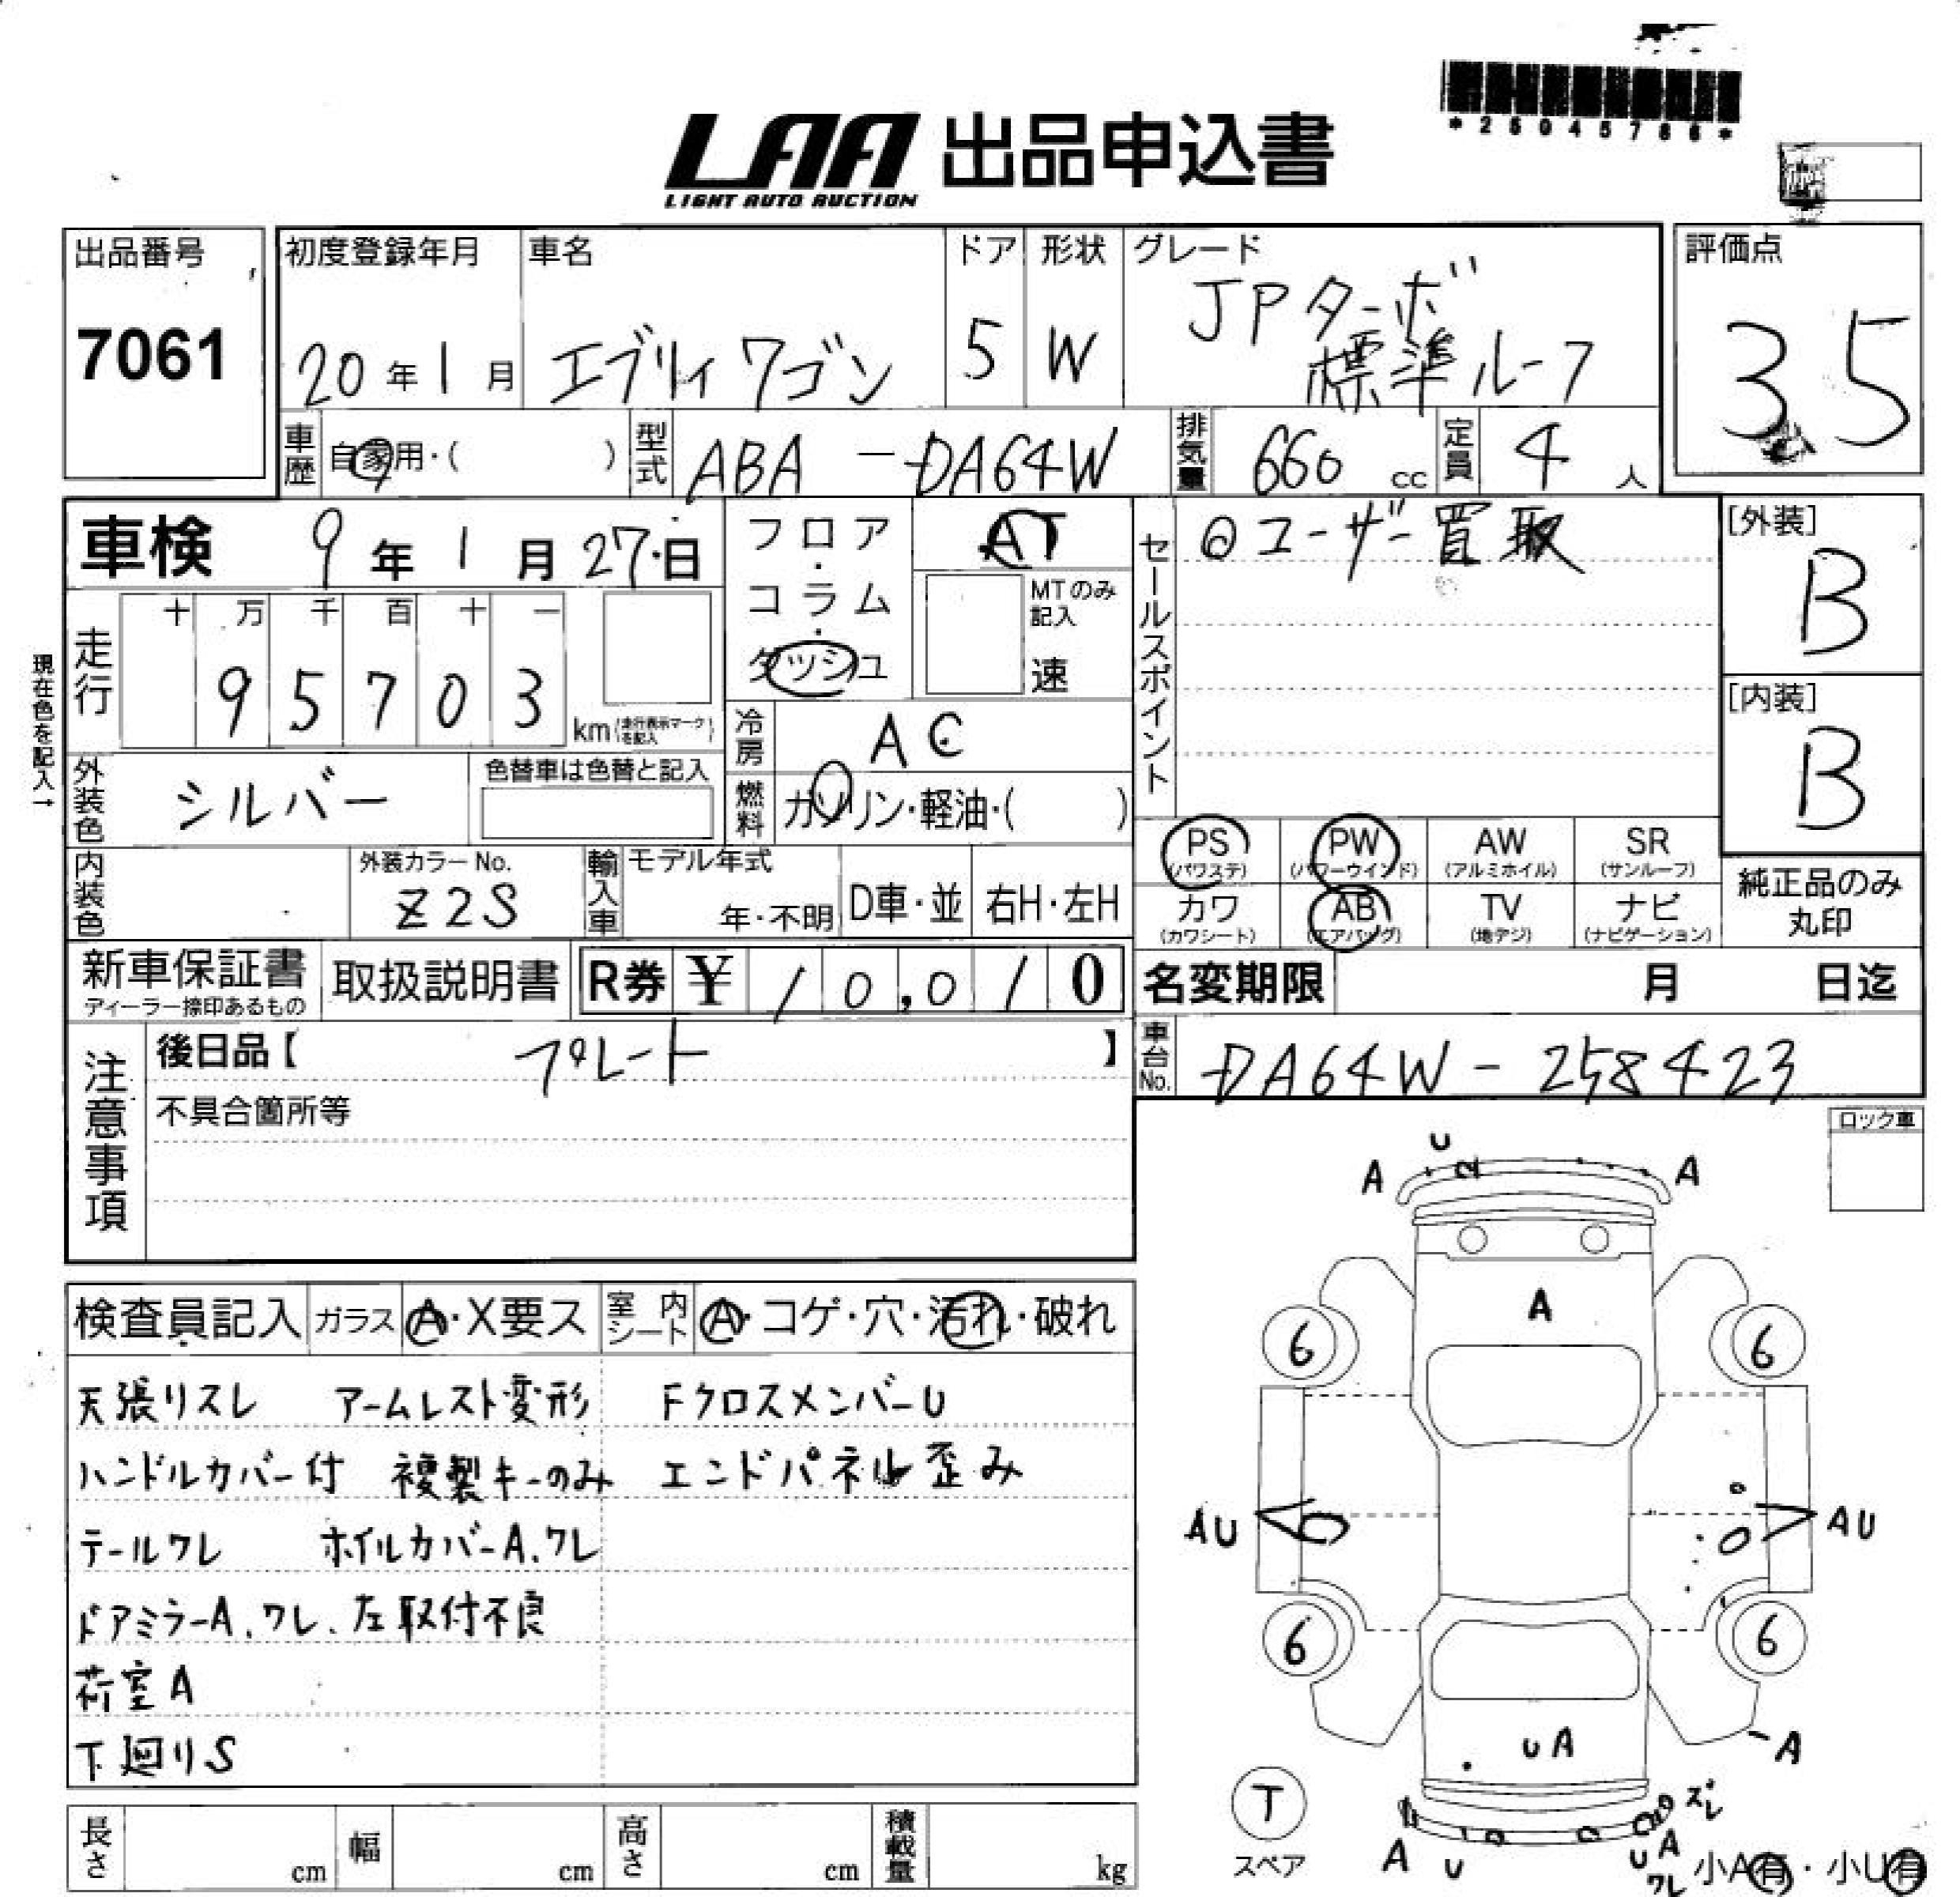 *25045786*
LAA 出品申込書
LIGHT AUTO AUCTION
出品番号
7061
初度登録年月
20年1月
車名
エブリィワゴン
ドア
5
形状
W
グレード
JPターボ
標準ルーフ
評価点
3.5
車歴
自家用・( )
型式
ABA-DA64W
排気量
660 cc
定員
4 人
車検 9年1月27日
フロア・コラム・ダッシュ
AT
MTのみ記入
速
セールスポイント
◎ユーザー買取
[外装]
B
[内装]
B
現在色を記入→
走行
十 万 千 百 十 一
9 5 7 0 3 km (走行表示マークを記入)
冷房
AC
燃料
ガソリン・軽油・( )
外装色
シルバー
色替車は色替と記入
内装色
外装カラーNo.
Z2S
輸入車
モデル年式
年・不明
D車・並
右H・左H
PS (パワステ)
PW (パワーウインド)
AW (アルミホイル)
SR (サンルーフ)
カワ (カワシート)
AB (エアバッグ)
TV (地デジ)
ナビ (ナビゲーション)
純正品のみ
丸印
新車保証書
ディーラー捺印あるもの
取扱説明書
R券 ¥10,010
名変期限 月 日迄
車台No.
DA64W-258423
注意事項
後日品【 プレート 】
不具合箇所等
ロック車
検査員記入
ガラス
A・X要ス
室内シート
A・コゲ・穴・汚れ・破れ
天張リスレ アームレスト変形 FクロスメンバーU
ハンドルカバー付 複製キーのみ エンドパネル歪み
テールワレ ホイルカバーA、ワレ
ドアミラーA、ワレ、左取付不良
荷室A
下廻りS
U
A A
A
6 6
AU AU
6 6
UA
A
T
スペア
ズレ
A U U A
ワレ
小A有・小U有
長さ cm
幅 cm
高さ cm
積載量 kg